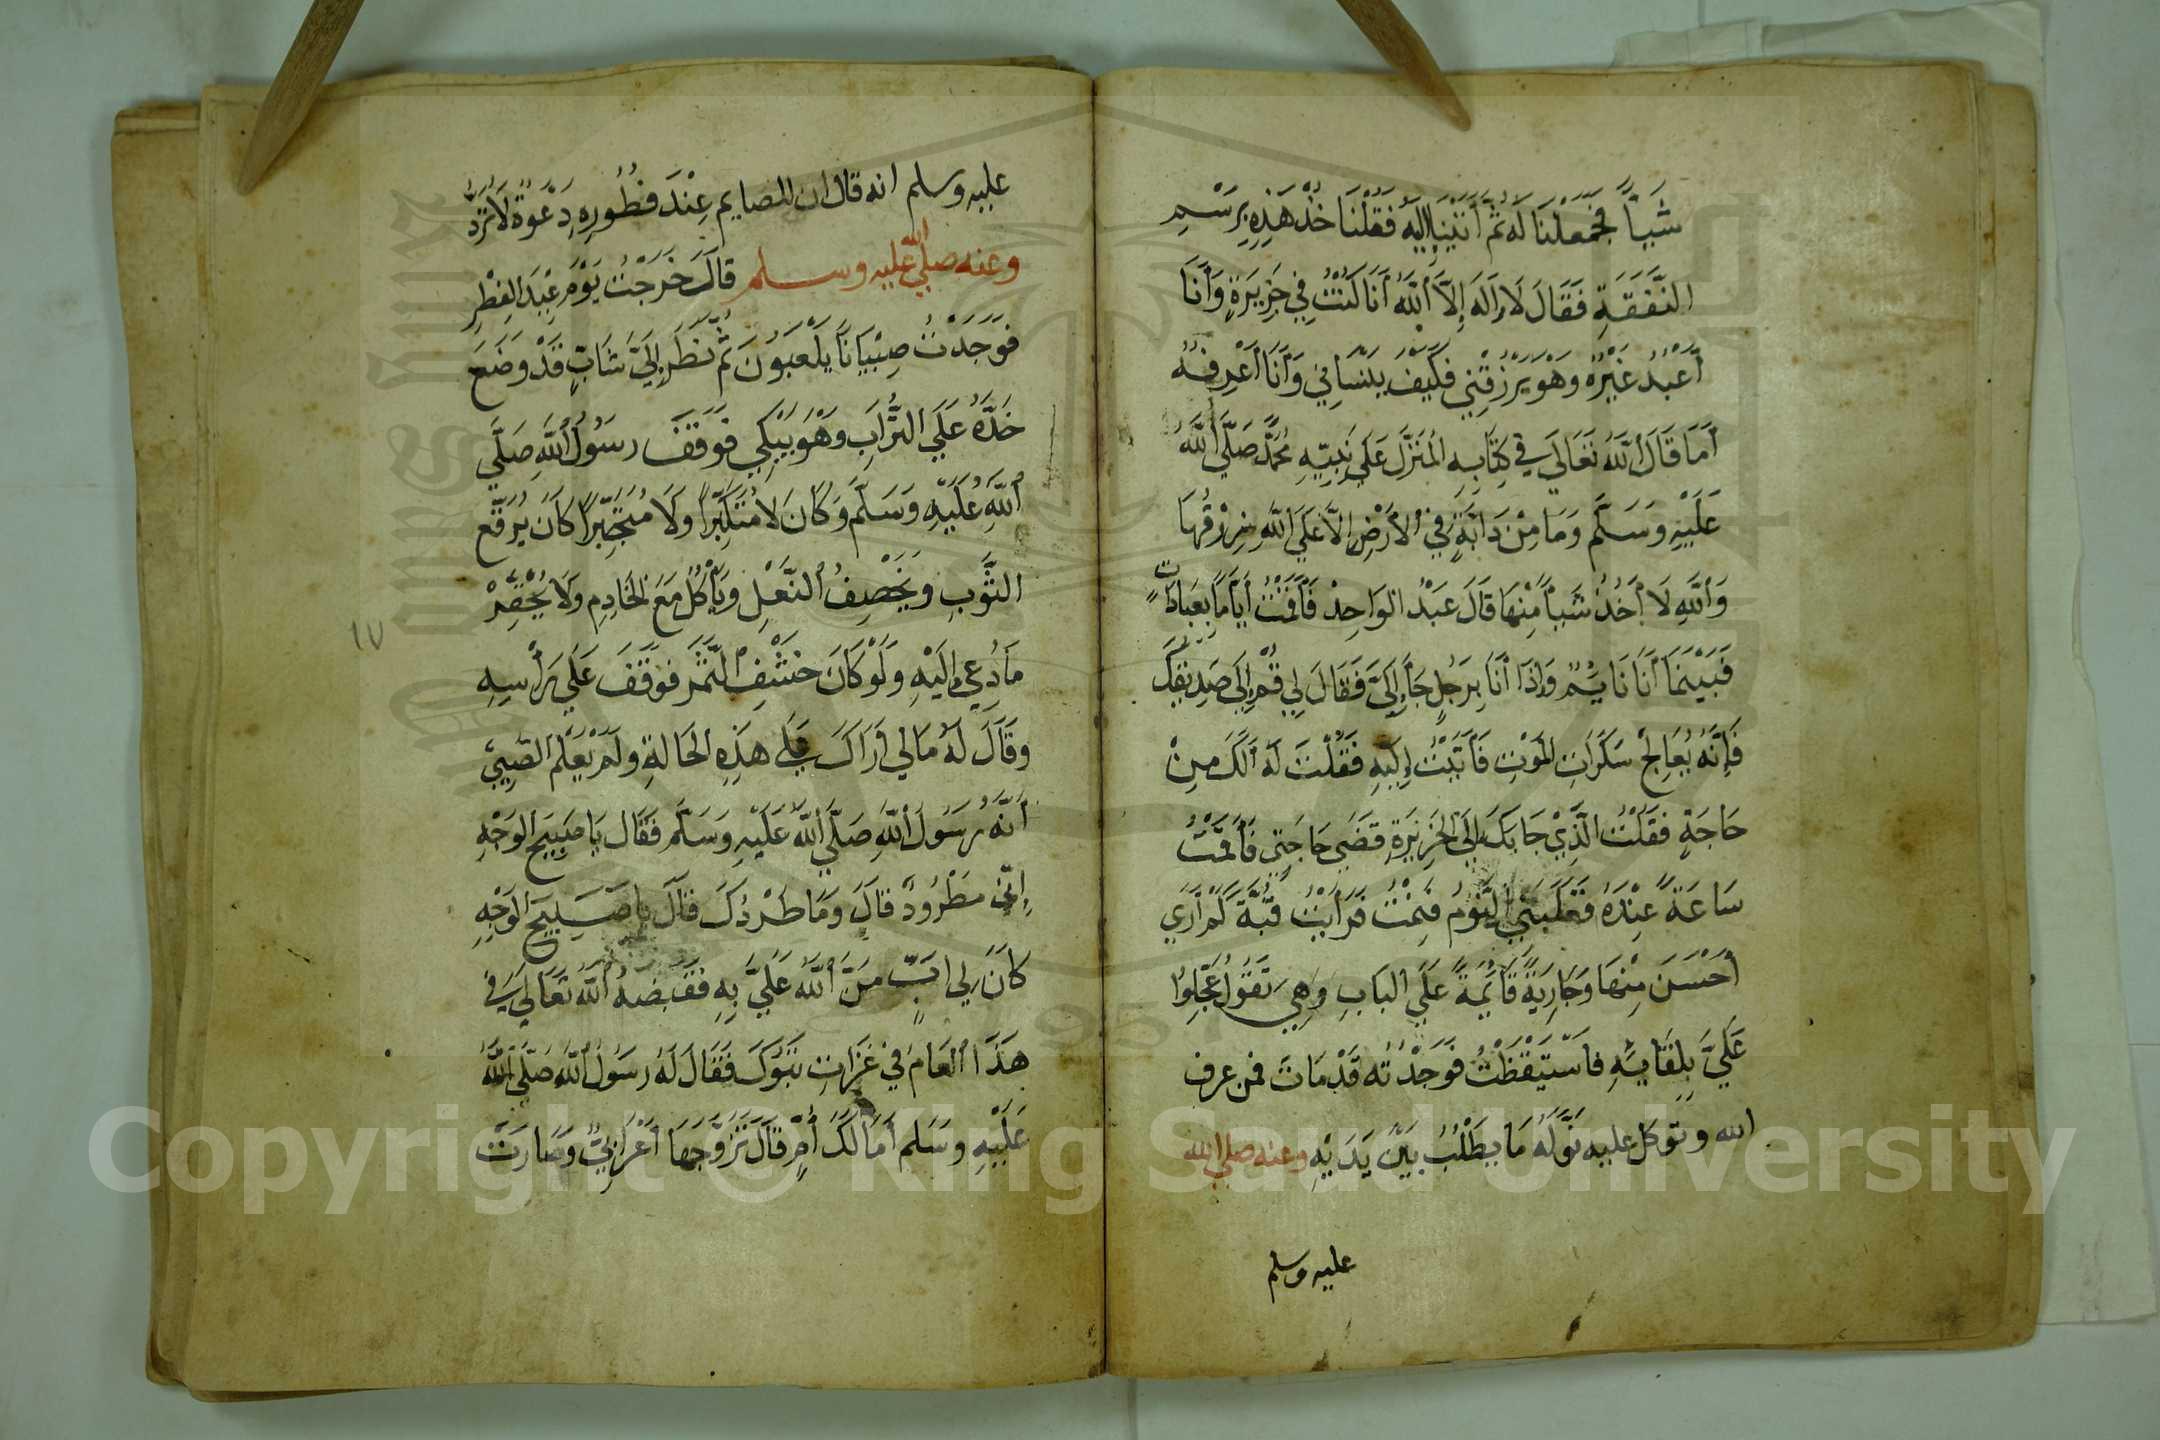 شَيأً فجَمَعْلنَا لَه ثُمَّ أتَيْنَا اِليَهْ فَقُلْنَا خُذْ هَذِهِ بِرَسْمِ
النَّفَقَةِ فَقَالَ لَا اِلَهَ إِلَّا اللَّهُ أنَا كُنْتُ فِي جَزِيرَةٍ وَأنَا
أعْبُدُ غَيْرَهُ وَهُوَ يَرْزُقْنِي فَكَيْفَ يَنْسَانِي وَأنَا أعْرِفهُ
أمَا قَالَ اللَّهُ تَعَالَي فِي كِتَابِهِ المُنَزَّلِ عَلَي نَبِيّهِ مُحَمَّدٍ صَلَّي اللَّهُ
عَلَيْهِ وَسَلَّم وَمَا مِنْ دَابَّةٍ فِي الأرْضِ اِلاَّ عَلَي اللَّهِ رِزْقُهَا
وَاللَّهِ لَا أخُذُ شَيأً مِنْهَا قَالَ عَبْدُ الوَاحِدْ فَأقَمْتُ أيَامَاً بِعَبَادَاتٍ
فَبَيْنَمَا أنَا نَايِمٌ وَاِذَا أنَا بِرَجُلٍ جَاَ إِلَيَّ فَقَالَ لِي قُمْ اِلَي صَدِيقِكَ
فَإِنَّهُ يُعَالِجْ سَكَرَاتِ المَوْتِ فَأتَيْتُ إِلَيْهِ فَقُلْتَ لَهُ ألَكَ مِنْ
حَاجَةٍ فقَلْتُ الَّذِيْ جَا بَكَ اِلَي الجَزِيَرةِ قَضَي حَاجَتِي فَأقَمْتُ
سَاعَةً عِنْدَهُ فَغَلَبَنِي النَّوْمُ فَنِمْتُ فَرَأيْتُ قُبَّةً لَمْ أرَي
أحْسَنَ مِنْهَا وَجَارِيَةً قَايُمَةً عَلَي البَابِ وَهِي تَقُولُ عَجِّلُوا
عَلَيَّ بِلِقَايِهِ فاَسْتَيْقَظْتُ فَوَجَدْتُه قَدْ مَاتَ فمن عرف
الله وتوكل عليه نَوَّلَهُ مَا يَطْلُبُ بَيْنَ يَدَيْهِ وعنه صلي الله
عليه وسلم
عليه وسلم انه قال ان للصايم عِنْدَ فطُورِهِ دَعْوَةٌ لَا تُرَدُّ
وعنه صلي الله عليه وسلم قالَ خَرَجْتُ يَوْمَ عِيْدَ الفِطْرِ
فَوَجَدْتُ صِبْيَانَاً يَلْعَبُونَ ثُمَّ نظَرَ اِلَيَ شَابٍّ قَدْ وَضَعَ
خَدَّهُ عَلَي التُّرَابِ وَهْوَ يَبْكِي فوَقَفَ رسُولُ اللَّهِ صَلَّي
اللهُ عَلَيْهِ وَسَلَّم وَكَانَ لَا مُتَكَبِّراً وَلَا مُتَجَبِّراً كَانَ يُرَقِّع
الثَّوْبِ وَيَخْصِفُ النَّعْلِ وَيَأْكُل مَعَ الخَادِمِ وَلَا يُحْقِّرْ
مَا دُعِي اِلَيْهِ وَلَوْ كَانَ حَشَفِ التَّمْرِ فَوَقَفَ عَلَي رَأْسِهِ
وقَالَ لَهُ مَالِي أرَاكَ عَلَي هَذِهِ الحَالةِ ولَمْ يَعْلَم الصَّبِيُّ
أنَّهُ رسَوُلَ اللَّهِ صَلَّي اللَّهُ عَلَيْهِ وَسَلَّم فَقَال يَا صَبِيحَ الوَجْهِ
إِنِّي مَطْرُودٌ قَالَ وَمَا طَرْدُكَ قَالَ يا صَبِيحَ الوَجْهِ
كانَ لِي ابٍ مَنَّ اللَّهُ عَلَيَّ بِهِ فقَبضَهُ اللَّهُ تَعَالَي فِي
هَذَا العَام فِي غَزَاتِ تَبُوكَ فَقَالَ لَهُ رسَوُلُ اللَّهُ صَلَّي اللَّهُ
عَلَيْهِ وسَلم أمَا لَكَ أُمٌّ قَالَ تَزَوَّجَهَا أعْرَابِيٌّ وَصَارَتْ
١٧
Copyright © King Saud University